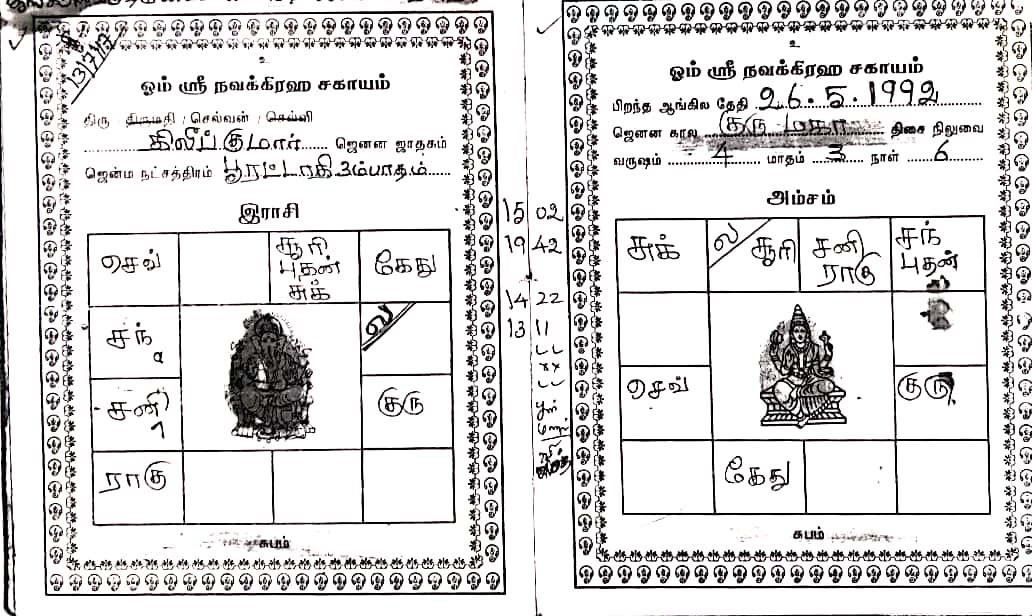 13/7/13
உ
ஓம் ஸ்ரீ நவக்கிரஹ சகாயம்
திரு / திருமதி / செல்வன் / செல்வி
திலீப்குமார் ஜெனன ஜாதகம்
ஜென்ம நட்சத்திரம் பூரட்டாதி 3ம்பாதம்
இராசி
செவ்
சூரி
புதன்
சுக்
கேது
சந்
ல
சனி
குரு
ராகு
சுபம்
15 02
19 42
14 22
13 11
உ
ஓம் ஸ்ரீ நவக்கிரஹ சகாயம்
பிறந்த ஆங்கில தேதி 26.5.1992
ஜெனன கால குரு மகா திசை நிலுவை
வருஷம் 4 மாதம் 3 நாள் 6
அம்சம்
சுக்
ல சூரி
சனி
ராகு
சந்
புதன்
செவ்
குரு
கேது
சுபம்